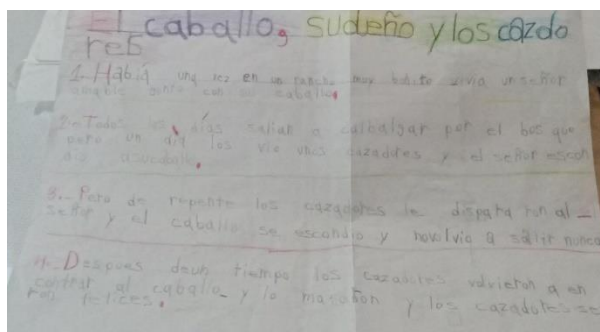 El caballo, su dueño y los cazdo
res
1-Habia una vez en un rancho muy bonito vivia un señor
amable junto con su caballo,
2-Todos los días salian a calbalgar por el bosque
pero un dia los vio unos cazadores y el señor escon
dio a su caballo.
3.-Pero de repente los cazadores le dispara ron al-
señor y el caballo se escondio y novolvio a salir nunca
4-Despues deun tiempo los cazadores volvieron a en
contrar al caballo y lo mataron y los cazadores se
ron felices.